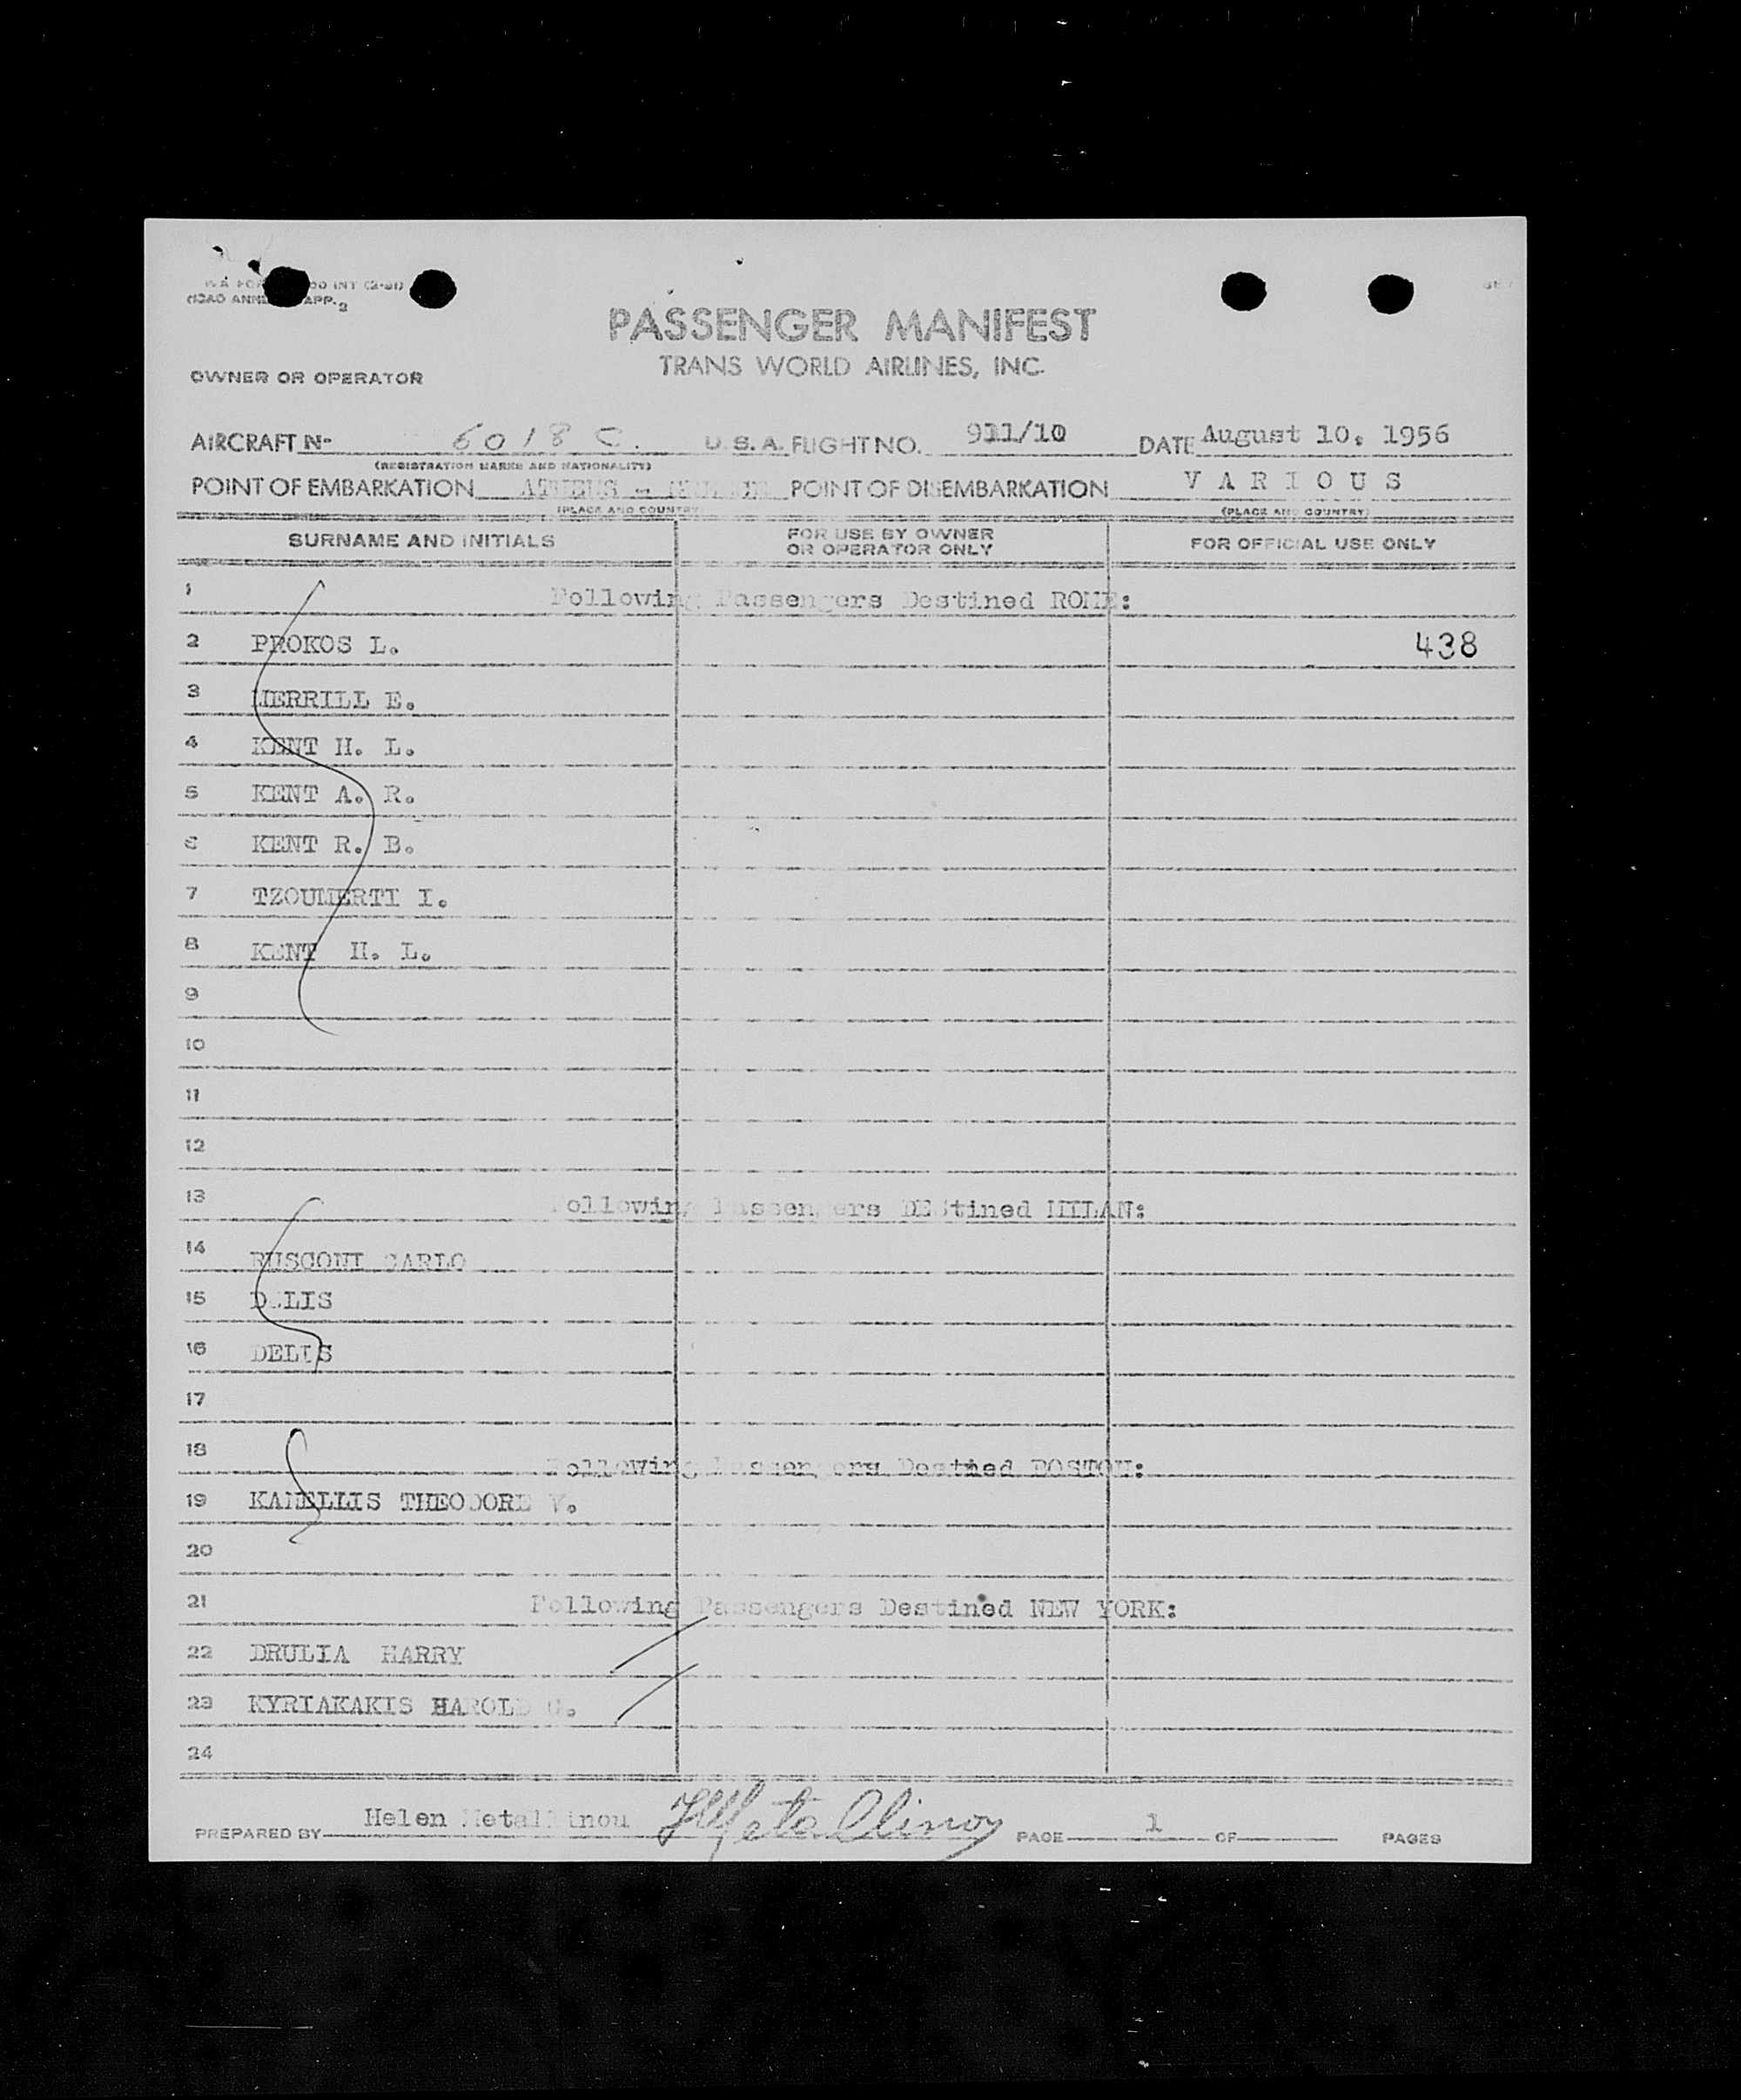 (ICAO ANNEX APP. 2
PASSENGER MANIFEST
TRANS WORLD AIRLINES, INC.
OWNER OR OPERATOR
AIRCRAFT N- 6018 C. U.S.A. FLIGHT NO. 911/10 DATE August 10, 1956
(REGISTRATION MARKS AND NATIONALITY)
POINT OF EMBARKATION ATHENS - POINT OF DISEMBARKATION V A R I O U S
(PLACE AND COUNTRY) (PLACE AND COUNTRY)
SURNAME AND INITIALS FOR USE BY OWNER OR OPERATOR ONLY FOR OFFICIAL USE ONLY
1 Following Passengers Destined ROME:
2 PROKOS L. 438
3 MERRILL E.
4 KENT H. L.
5 KENT A. R.
6 KENT R. B.
7 TZOUMERTI I.
8 KENT H. L.
9
10
11
12
13 Following Passengers DEStined MILAN:
14 RUSCONI CARLO
15 DELIS
16 DELIS
17
18 Following Passengers Destned BOSTON:
19 KANELLIS THEODORE V.
20
21 Following Passengers Destined NEW YORK:
22 DRULIA HARRY
23 KYRIAKAKIS HAROLD G.
24
PREPARED BY Helen Metallinou HMetallinou PAGE 1 OF PAGES